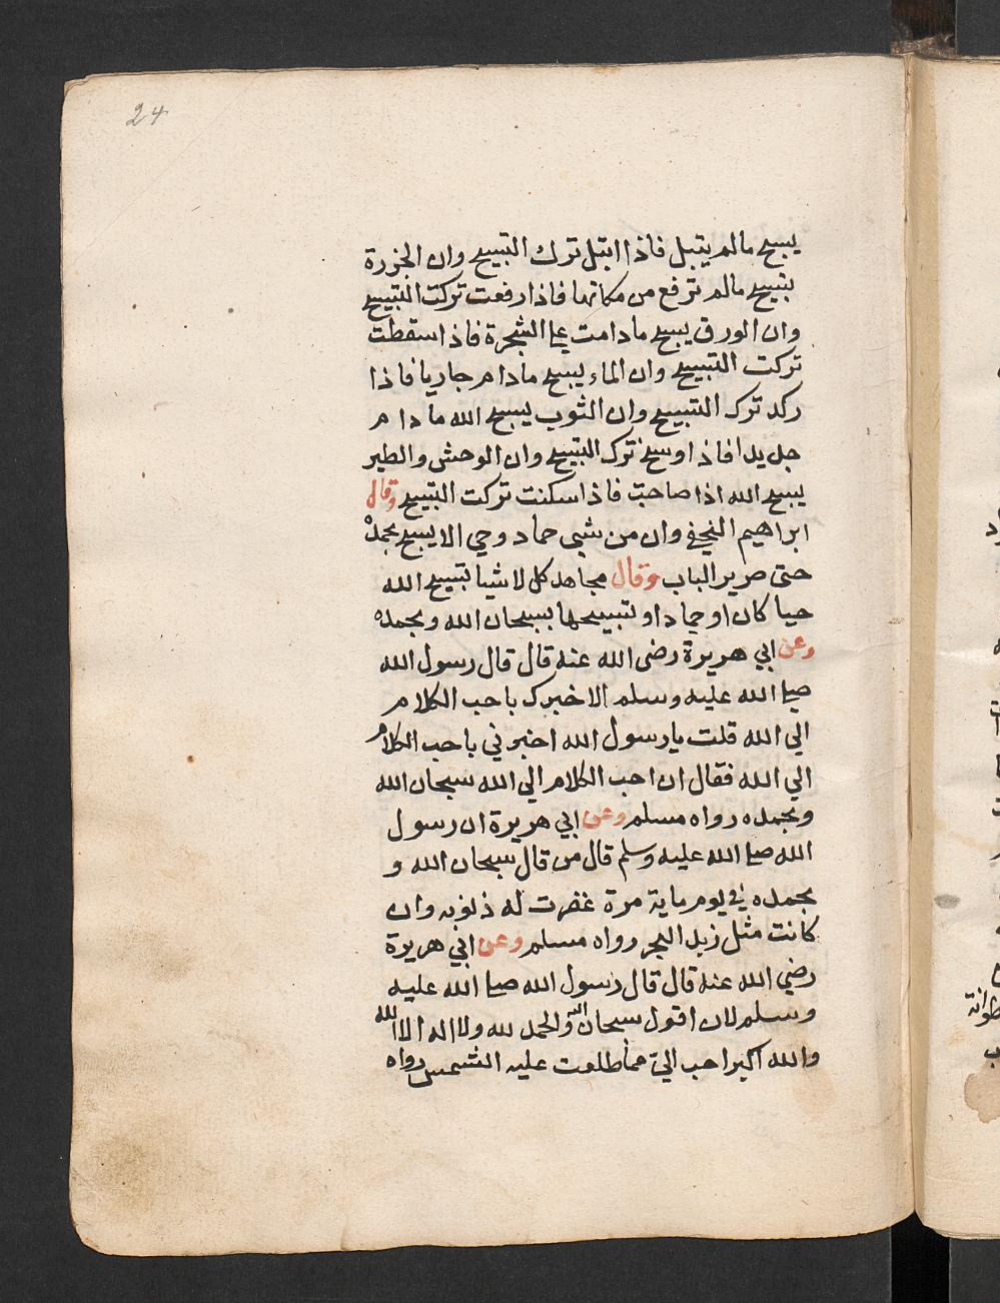 24
يسبح مالم يتبل فاذا ابتل ترك التسبيح وان الخزرة
تسبح مالم ترفع من مكانها فاذا رفعت تركت التسبيح
وان الورق يسبح مادامت علي الشجرة فاذا سقطت
تركت التسبيح وان الماء يسبح مادام جاريا فاذا
ركد ترك التسبيح وان الثوب يسبح الله مادام
جديدا فاذا وسخ ترك التسبيح وان الوحش والطير
يسبح الله اذا صاحت فاذا سكنت تركت التسبيح وقال
ابراهيم النخعي وان من شيي جماد وحي الا يسبح بحمده
حتى صرير الباب وقال مجاهد كل لاشيا تسبح الله
حيا كان او جماد او تسبيحها بسبحان الله وبحمده
وعن ابي هريرة رضى الله عنه قال قال رسول الله
صلي الله عليه وسلم الا اخبرك باحب الكلام
الي الله قلت يارسول الله اخبرني باحب الكلام
الي الله فقال ان احب الكلام الي الله سبحان الله
وبحمده رواه مسلم وعن ابي هريرة ان رسول
الله صلي الله عليه وسلم قال من قال سبحان الله و
بحمده في يوم ماية مرة غفرت له ذنوبه وان
كانت مثل زبد البحر رواه مسلم وعن ابي هريرة
رضي الله عنه قال قال رسول الله صلي الله عليه
وسلم لان اقول سبحان الله والحمد لله ولا اله الا الله
والله اكبر احب اليّ مما طلعت عليه الشمس رواه